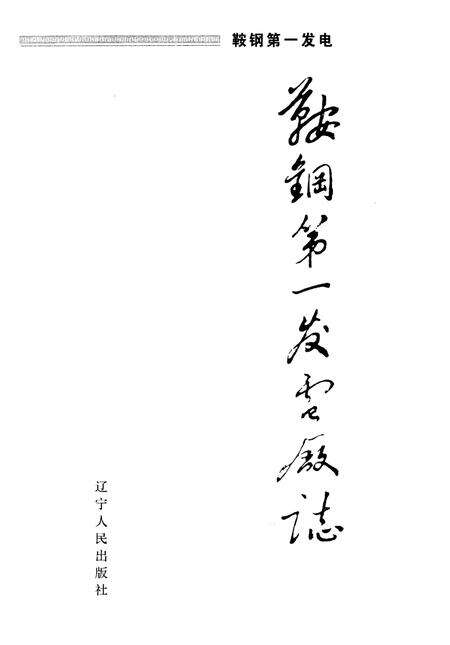 鞍钢第一发电
鞍鋼第一发電厰誌
辽宁人民出版社